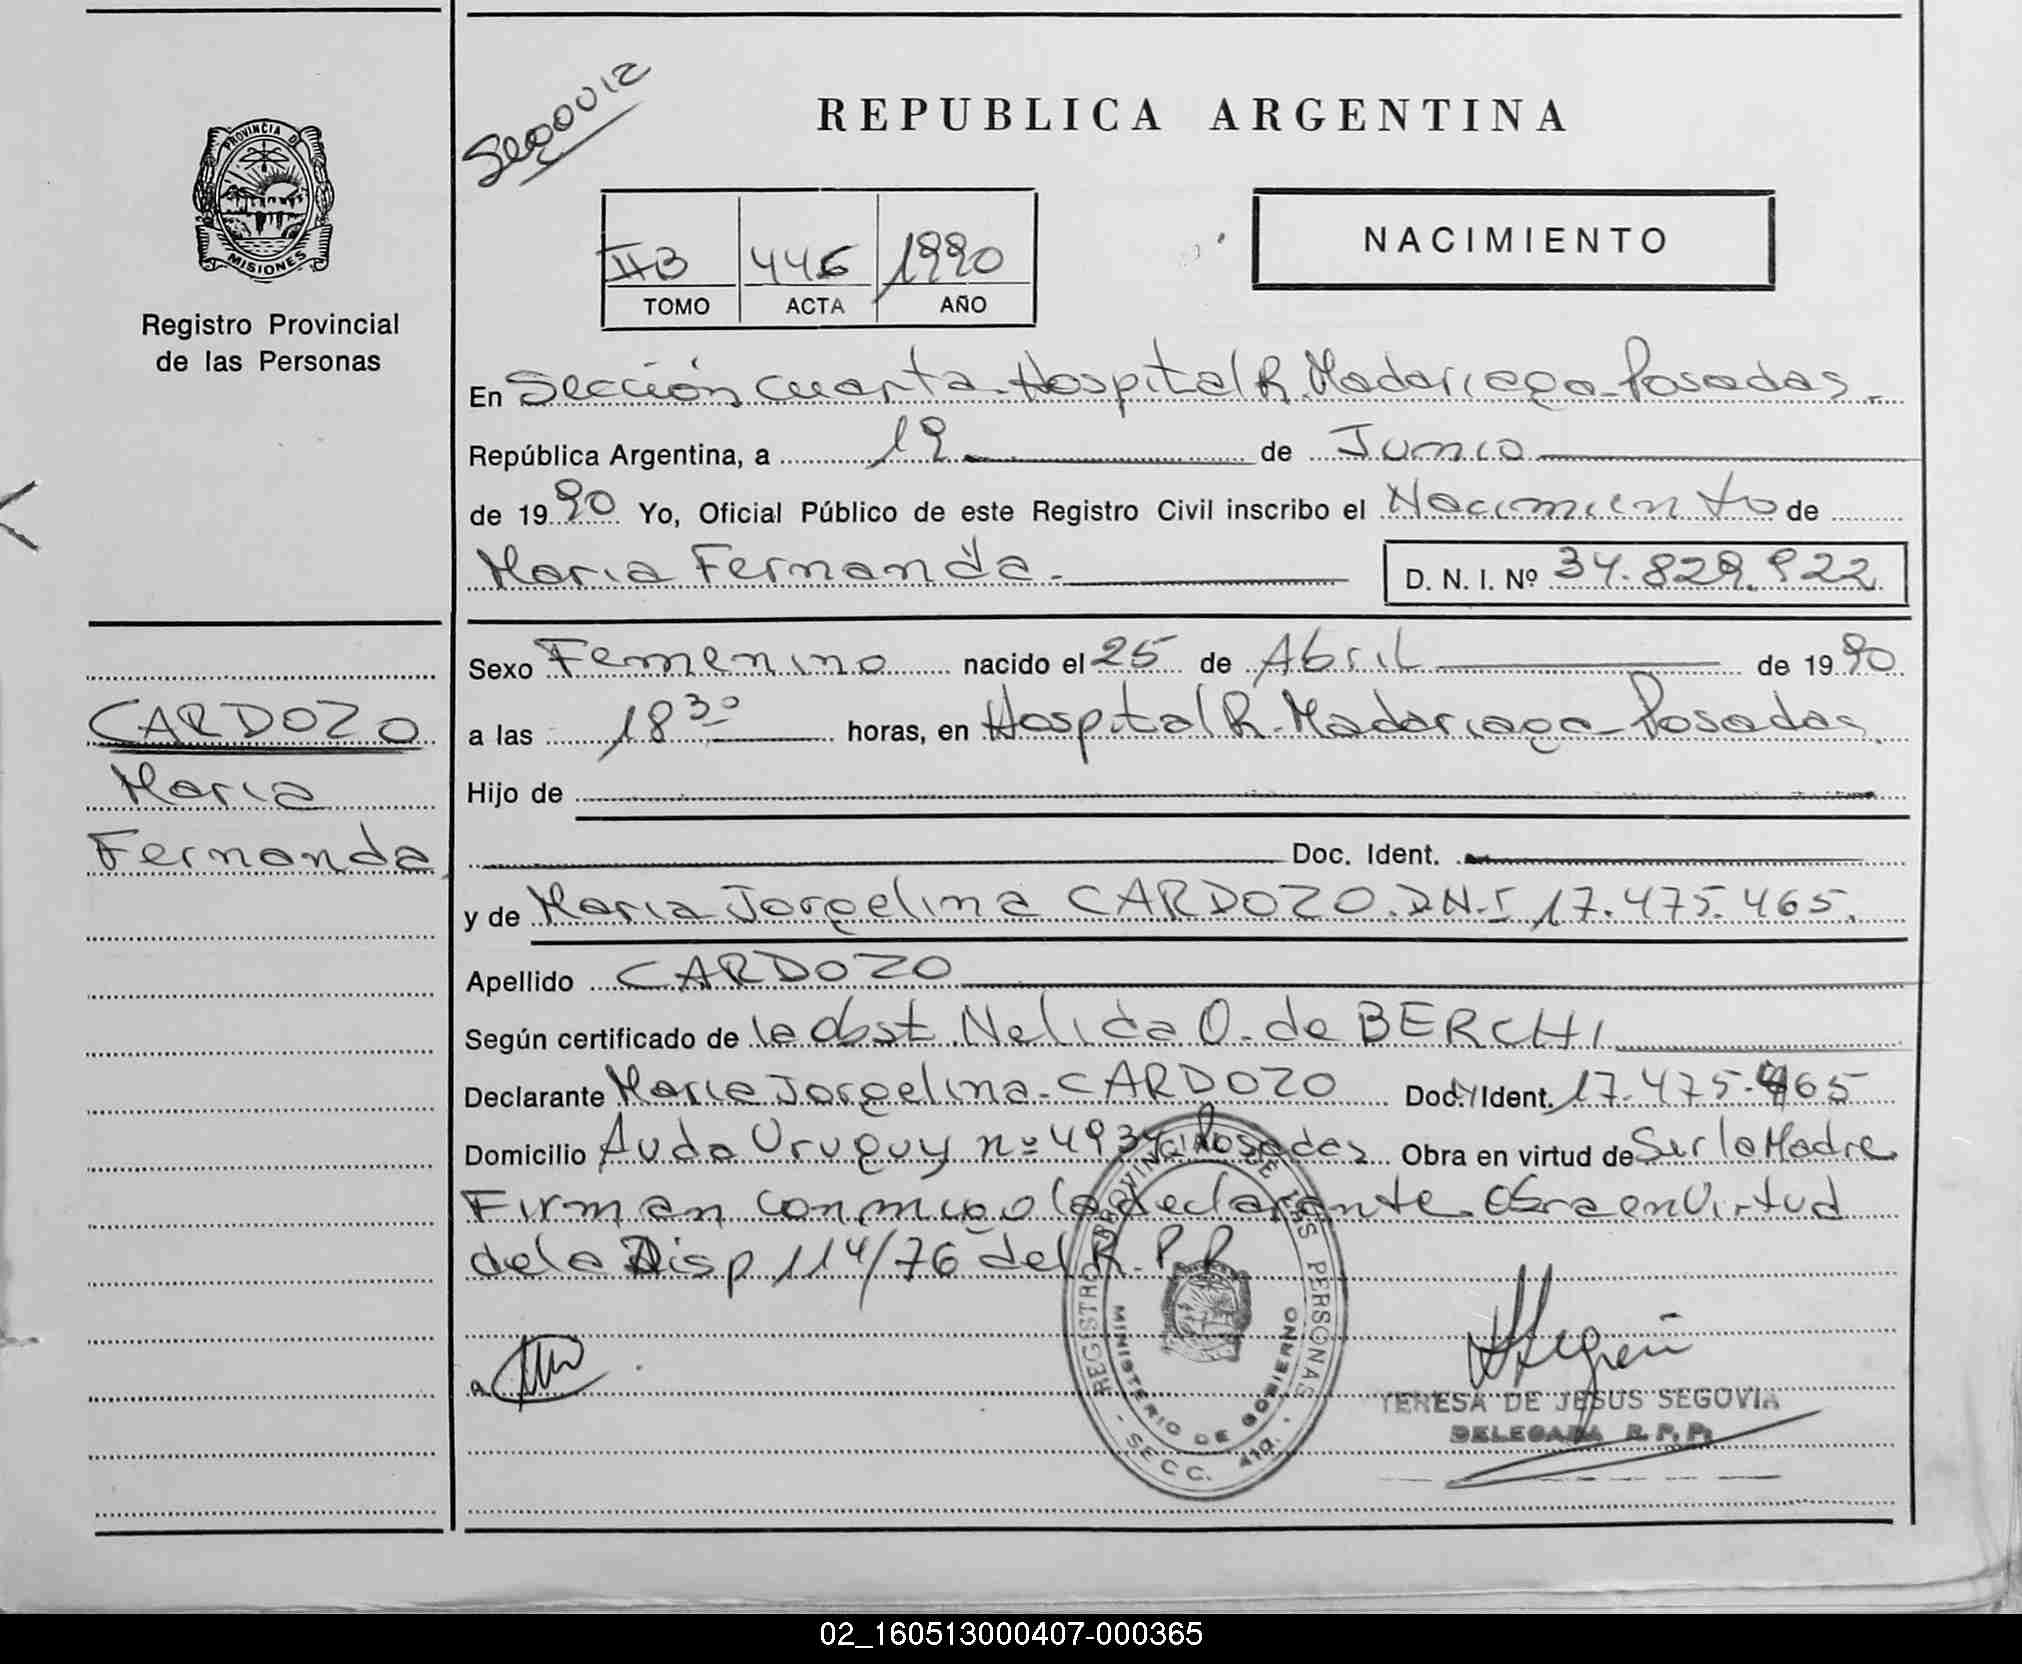 PROVINCIA DE
MISIONES
Registro Provincial
de las Personas
CARDOZO
Maria
Fernanda
REPUBLICA ARGENTINA
IIB 446 1990
TOMO ACTA AÑO
NACIMIENTO
En Sección cuarta-Hospital R. Madariaga-Posadas.
República Argentina, a 19 de Junio
de 1990 Yo, Oficial Público de este Registro Civil inscribo el Nacimiento de
Maria Fernanda.
D. N. I. Nº 34.829.922
Sexo Femenino nacido el 25 de Abril de 1990
a las 18 30 horas, en Hospital R. Madariaga-Posadas.
Hijo de
Doc. Ident.
y de Maria Jorgelina CARDOZO. D.N.I 17.475.465.
Apellido CARDOZO
Según certificado de la obst. Nelida O. de BERCHI
Declarante Maria Jorgelina-CARDOZO Doc. Ident. 17.475.465
Domicilio Avda Uruguy nº 4934 Posadas Obra en virtud de Ser la Madre
Firman conmigo la declarante. Obra en Virtud
de la Disp 114/76 del R.P.P
REGISTRO PROVINCIAL DE LAS PERSONAS
MINISTERIO DE GOBIERNO
- SECC. 4ta. -
TERESA DE JESUS SEGOVIA
DELEGADA R. P. P.
02_160513000407-000365